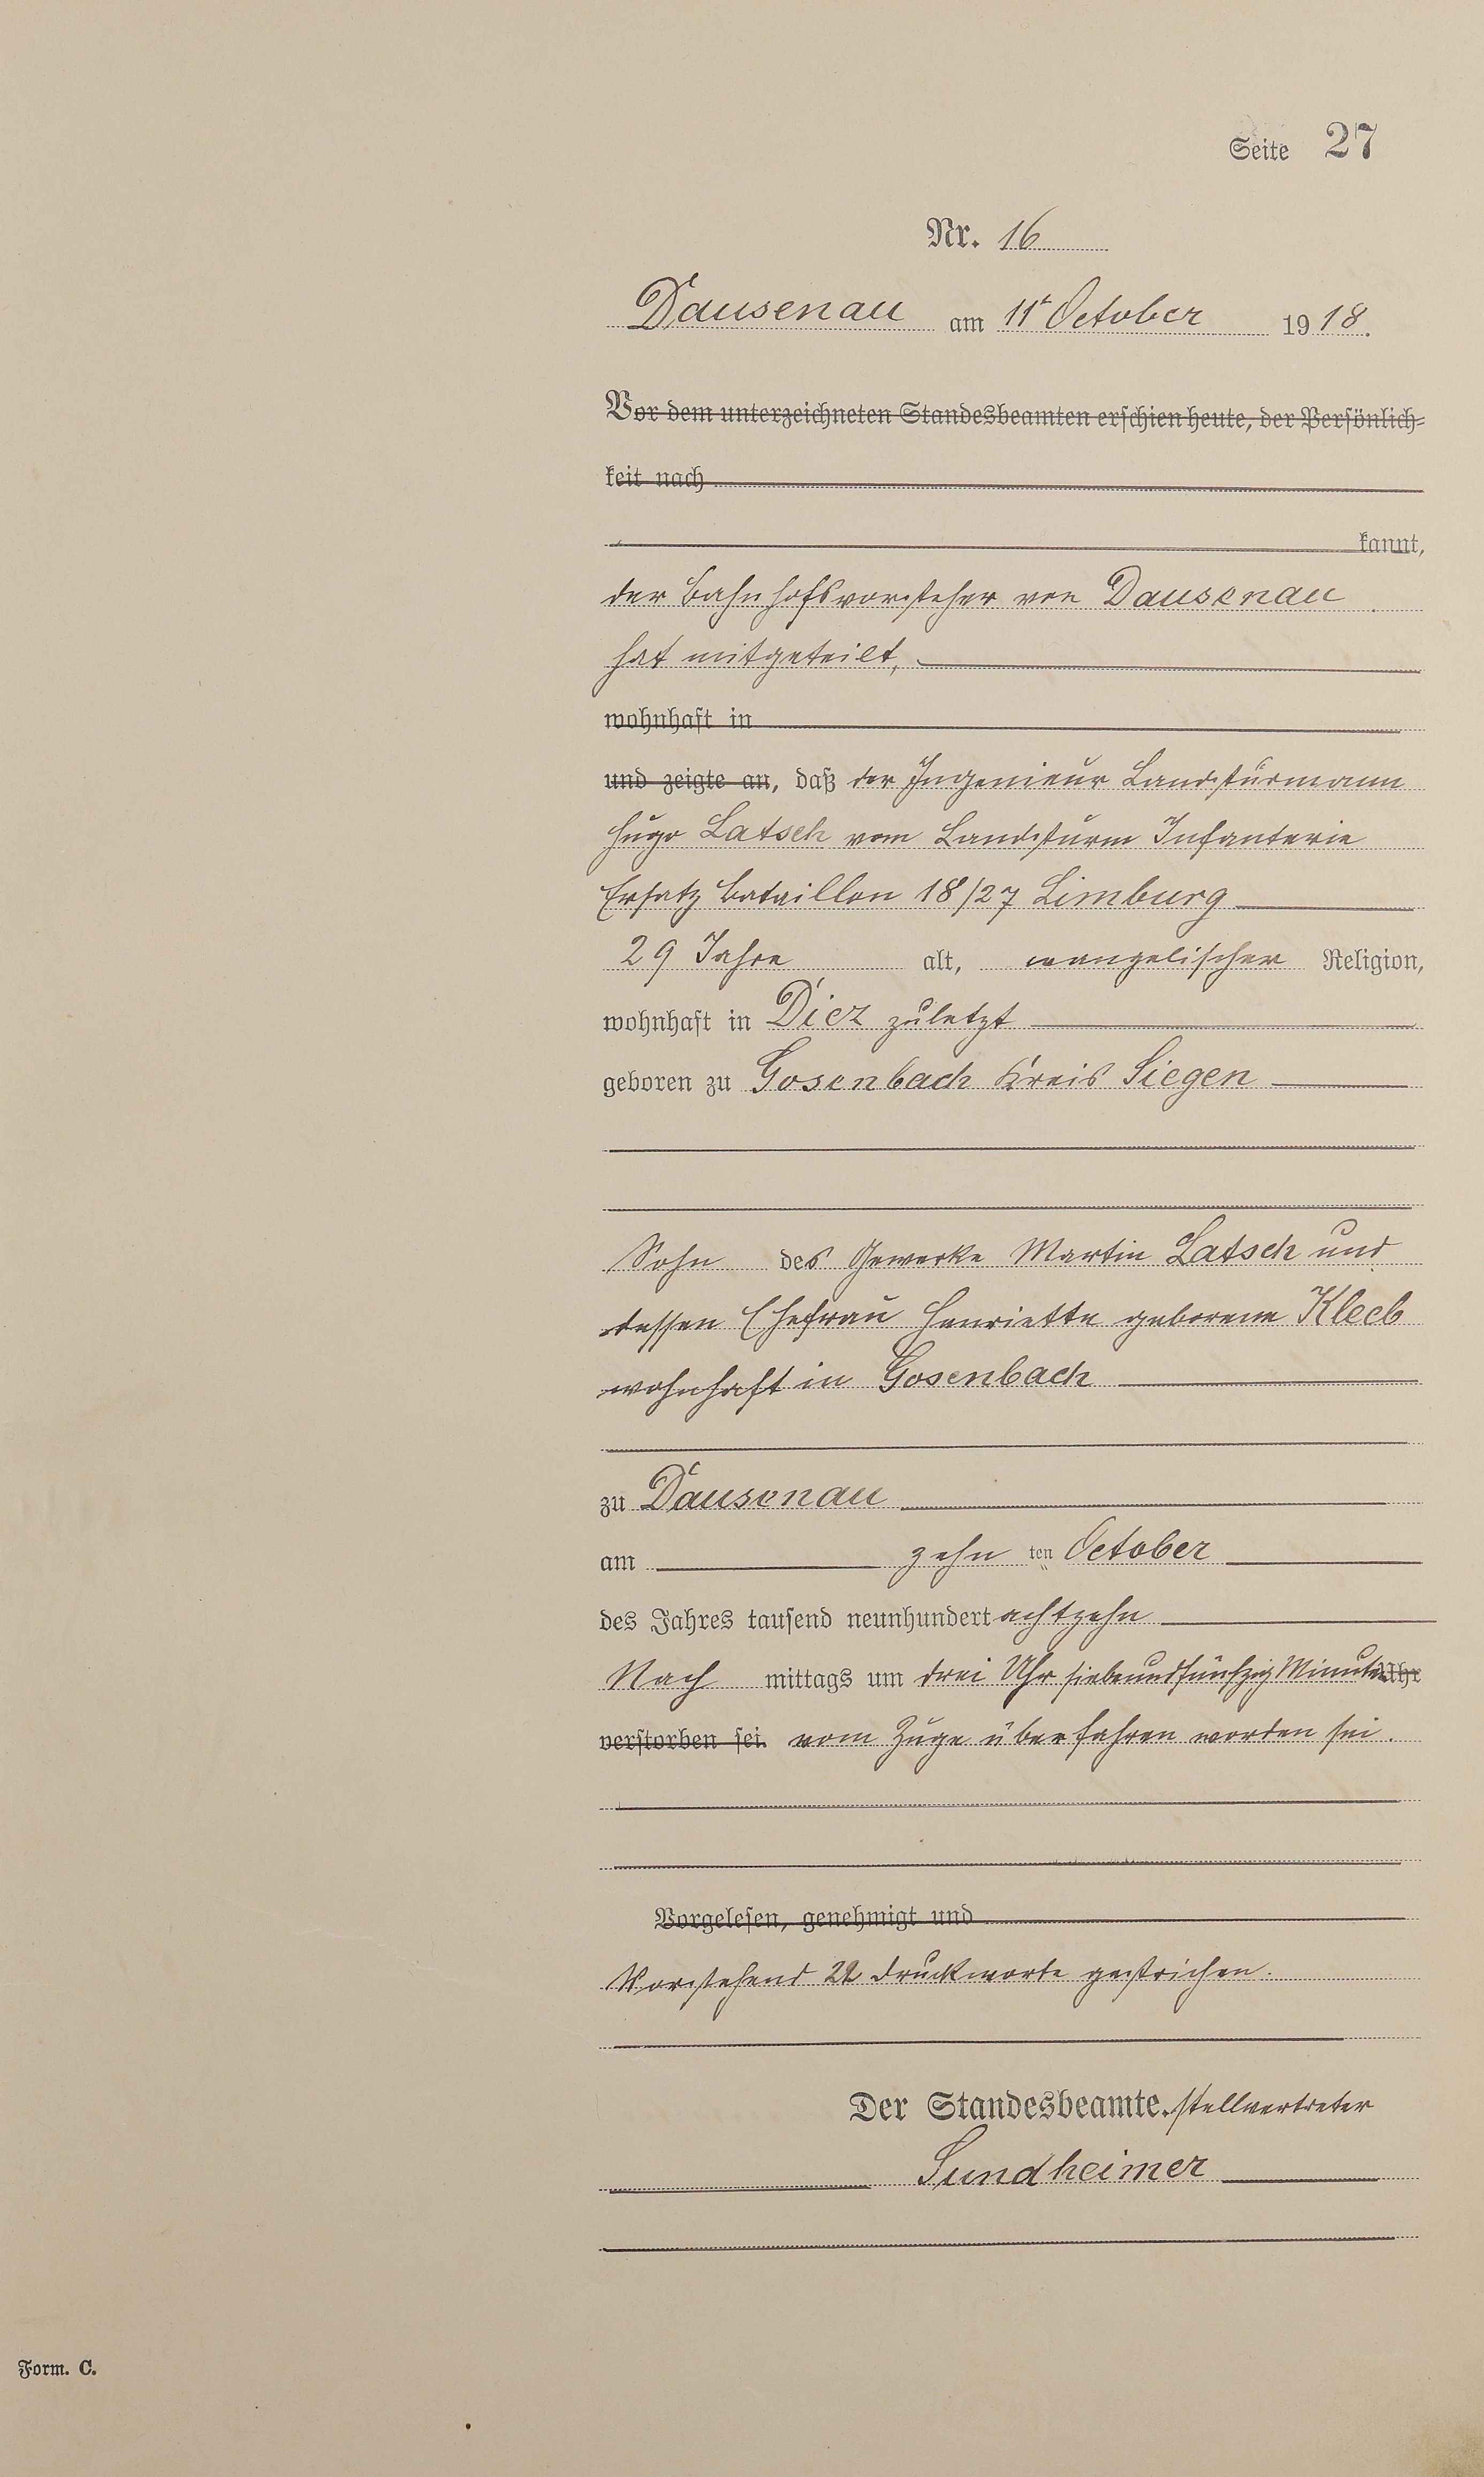 Seite 27
Nr. 16
Dausenau am 11t October 1918.
Vor dem unterzeichneten Standesbeamten erschien heute, der Persönlich-
keit nach
kannt,
der Bahnhofsvorsteher von Dausenau
hat mitgeteilt,
wohnhaft in
und zeigte an, daß der Ingenieur Landsturmann
Hugo Latsch vom Landsturm Infanterie
Ersatz Bataillon 18/27 Limburg
29 Jahre alt, evangelischer Religion,
wohnhaft in Diez zuletzt
geboren zu Gosenbach Kreis Siegen
Sohn des Gewerke Martin Latsch und
dessen Ehefrau Henriette geborene Kleeb
wohnhaft in Gosenbach
zu Dausenau
am zehn ten October
des Jahres tausend neunhundert achtzehn
Nach mittags um drei Uhr siebenundfünfzig Minuten Uhr
verstorben sei. vom Zuge überfahren worden sei.
Vorgelesen, genehmigt und
Vorstehend 22 Druckworte gestrichen.
Der Standesbeamte. stellvertreter
Sundheimer
Form. C.